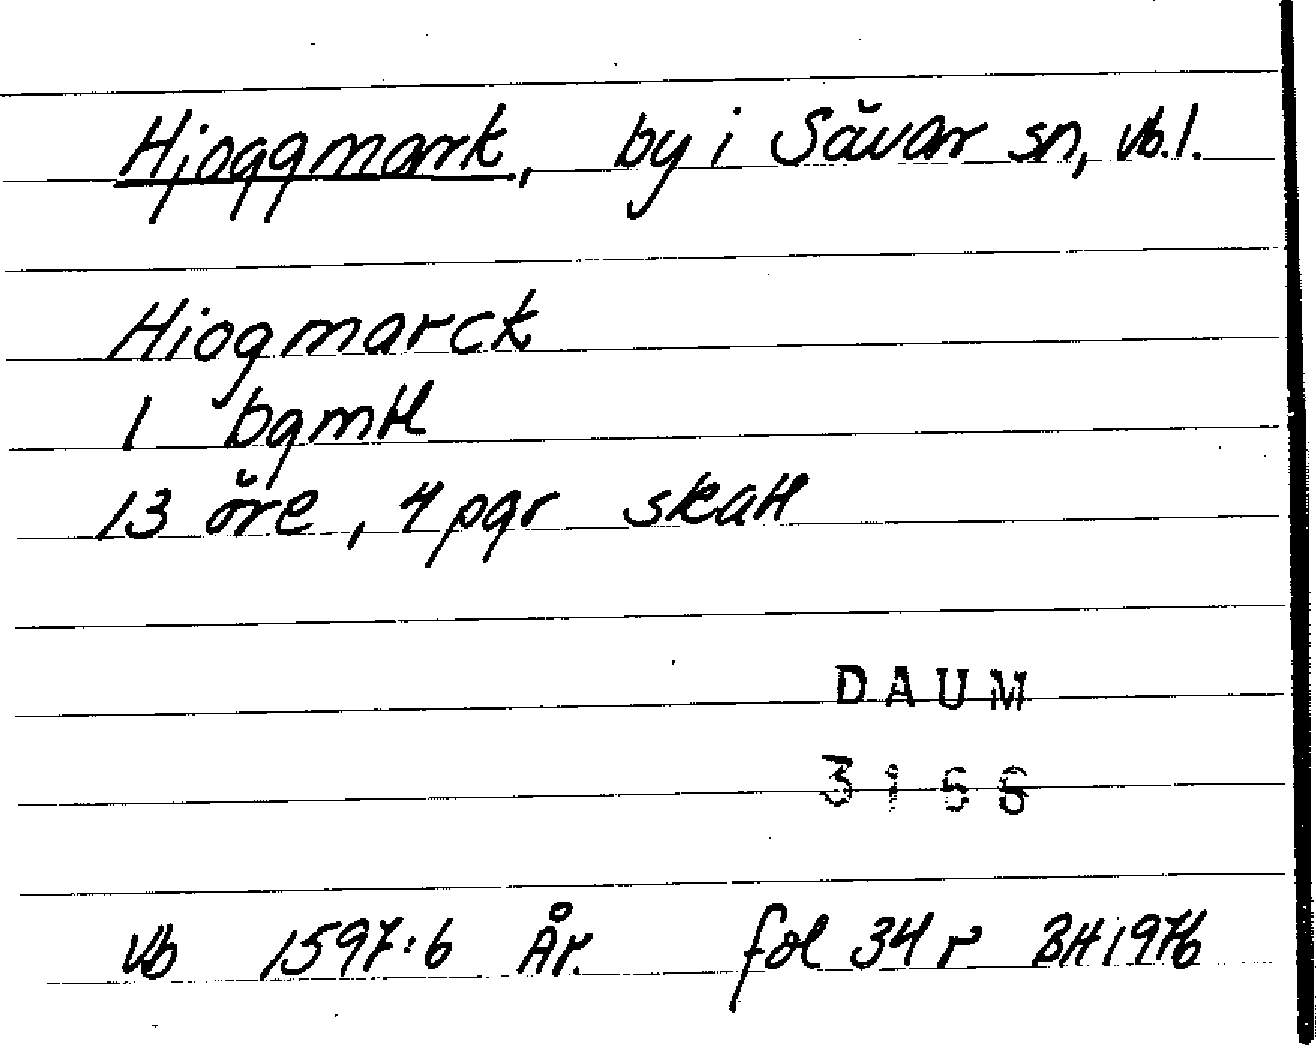 Hjoggmark, by i Sävar sn, Vb.l.
Hiogmarck
1 bgmtl
13 öre, 4 pgr skatt
DAUM
3166
Vb 1597:6 År. fol 34 r BH 1976